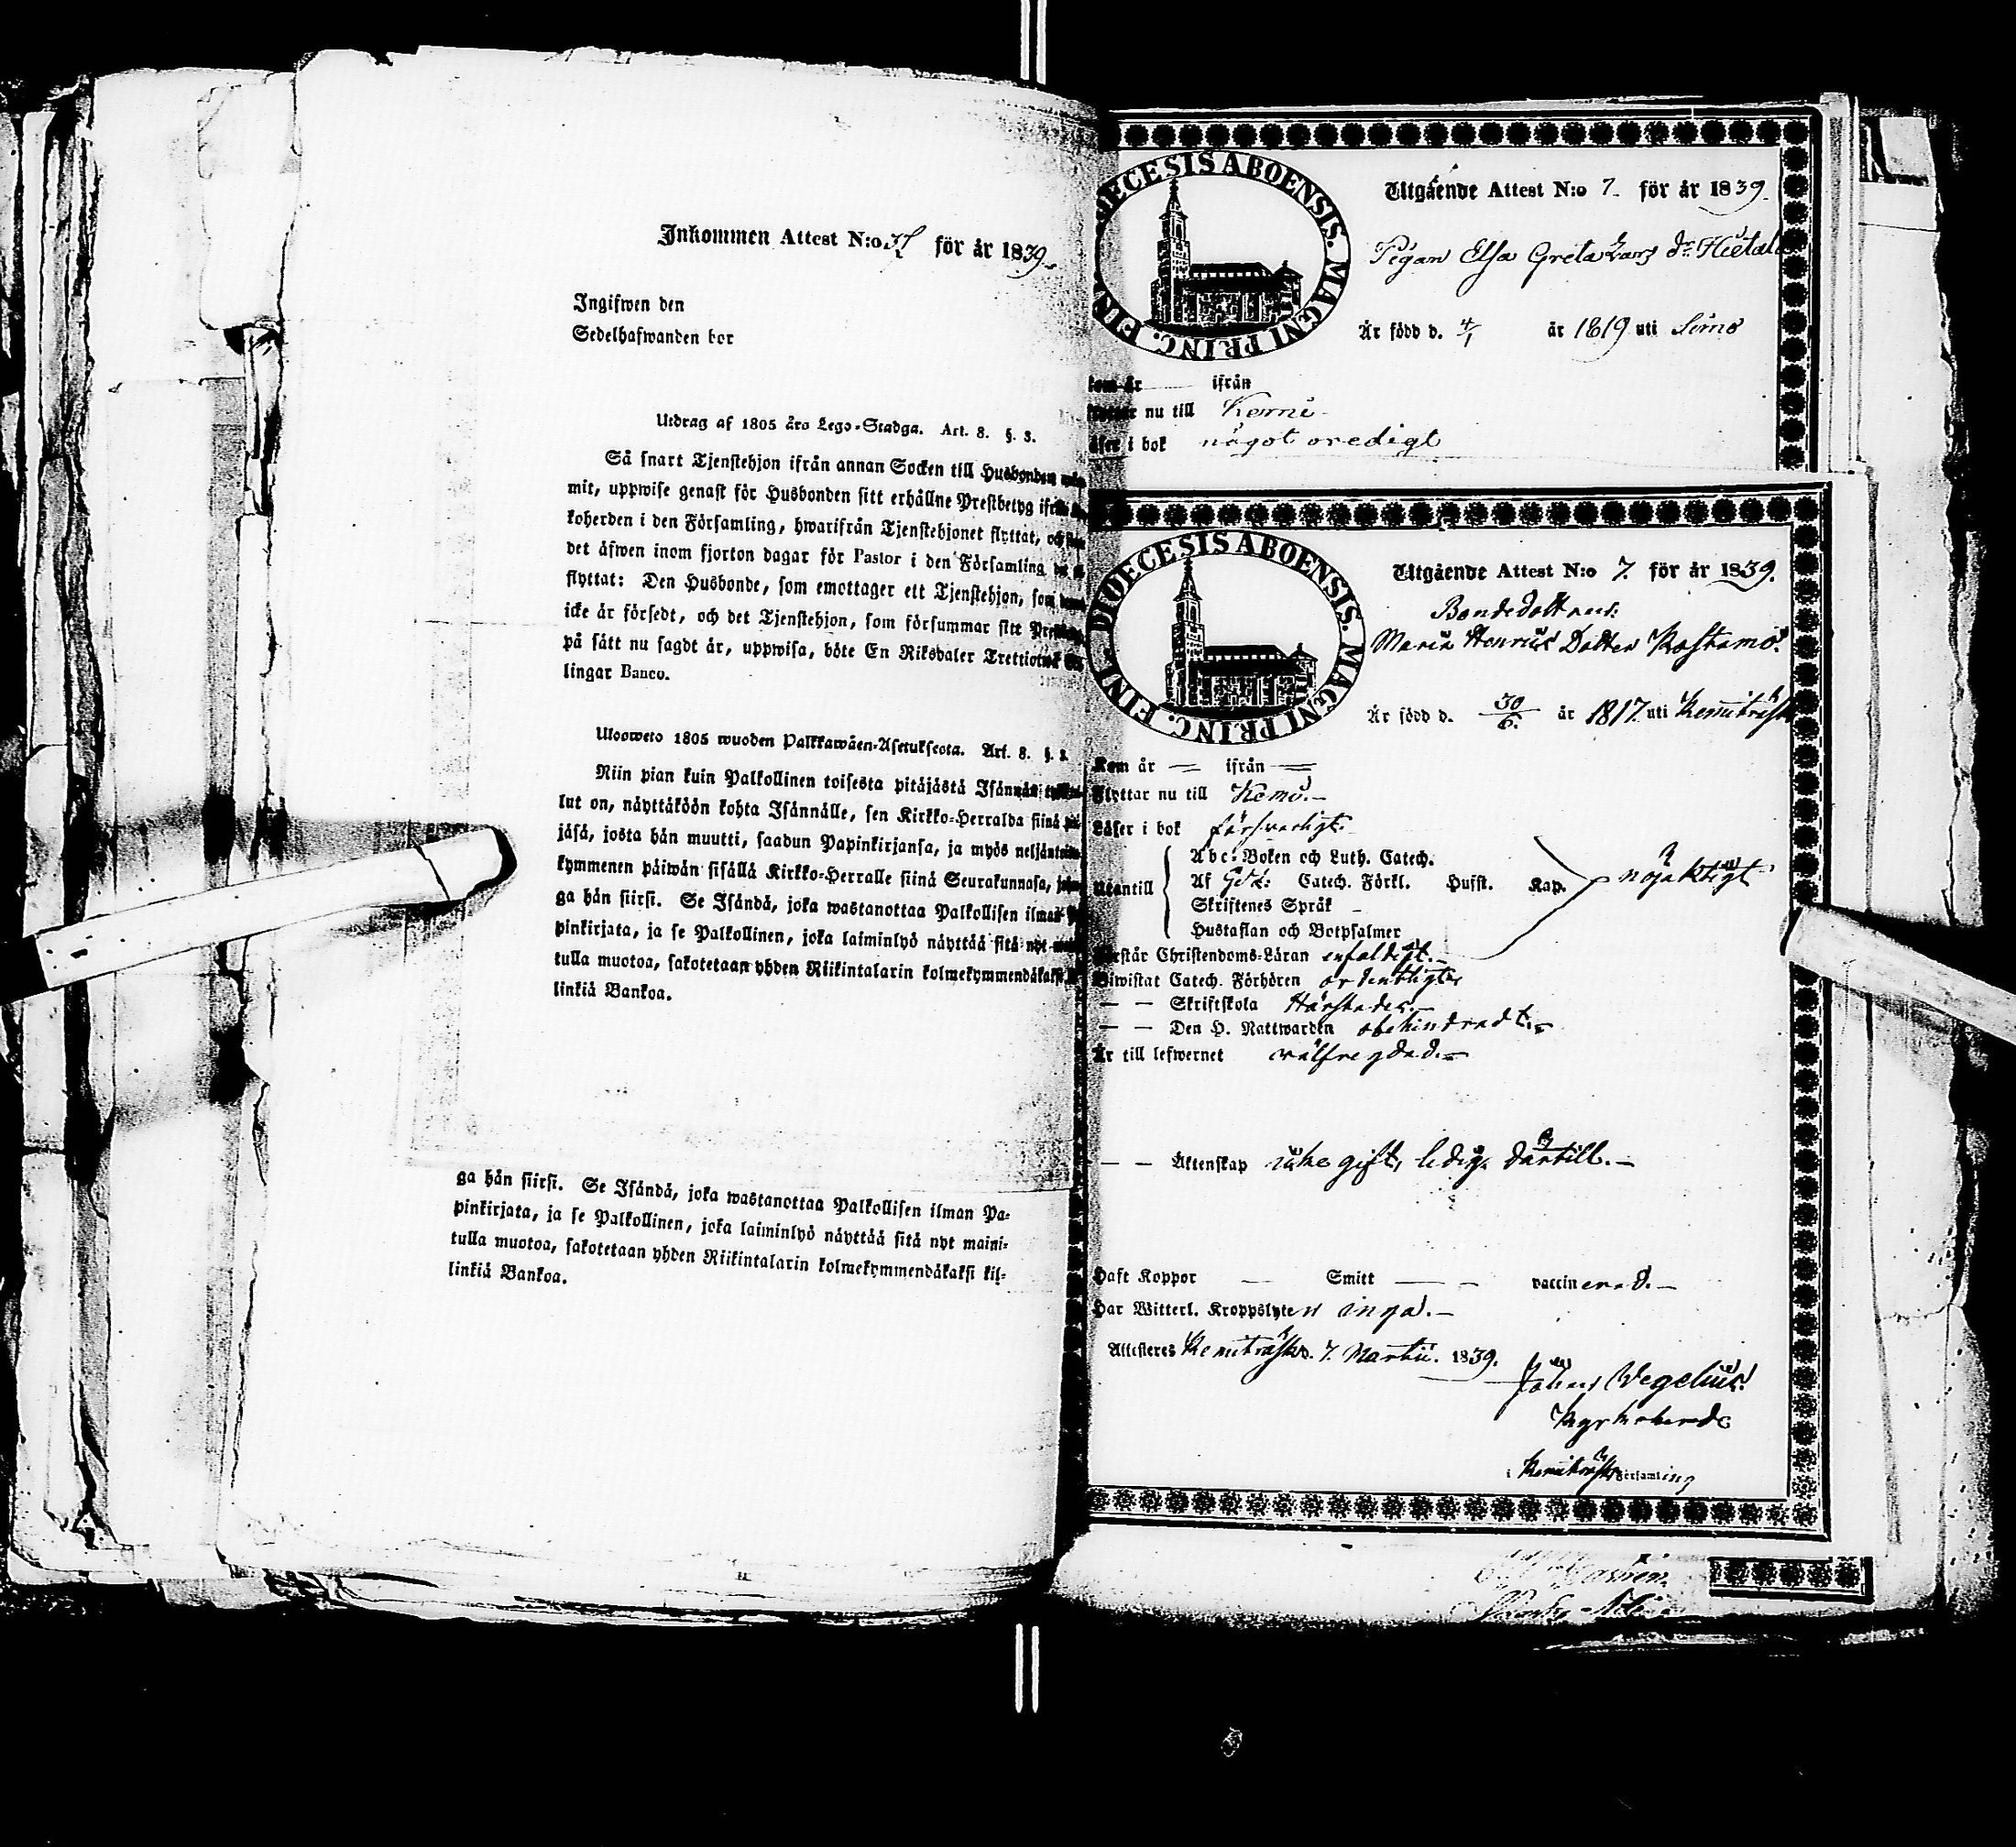 Inkommen Attest N:o 37 för år 1839.
Ingifwen den
Sedelhafwanden bor
Utdrag af 1805 års Lego-Stadga. Art. 8. §. 3.
Så snart Tjenstehjon ifrån annan Socken till Husbonden
mit, uppwise genast för Husbonden sitt erhållne Prestbetyg ifrån
koherden i den Församling, hwarifrån Tjenstehjonet flyttat, och
det äfwen inom fjorton dagar för Pastor i den Församling
flyttat: Den Husbonde, som emottager ett Tjenstehjon, som
icke är försedt, och det Tjenstehjon, som försummar sitt
på sätt nu sagdt är, uppwisa, böte En Riksdaler Trettiotwå
lingar Banco.
Ulosweto 1805 wuoden Palkkawäen-Asetuksesta. Art. 8. §. 3.
Niin pian kuin Palkollinen toisesta pitäjästä Isännän
lut on, näyttäköön kohta Isännälle, sen Kirkko-Herralda siinä
jäsä, josta hän muutti, saadun Papinkirjansa, ja myös neljäntoista
kymmenen päiwän sisällä Kirkko-Herralle siinä Seurakunnasa,
ga hän siirsi. Se Isändä, joka wastanottaa Palkollisen ilman
pinkirjata, ja se Palkollinen, joka laiminlyö näyttää sitä nyt
tulla muotoa, sakotetaan yhden Riikintalarin kolmekymmendäkaksi
linkiä Bankoa.
ga hän siirsi. Se Isändä, joka wastanottaa Palkollisen ilman Pa-
pinkirjata, ja se Palkollinen, joka laiminlyö näyttää sitä nyt maini-
tulla muotoa, sakotetaan yhden Riikintalarin kolmekymmendäkaksi kil-
linkiä Bankoa.
DIOECESIS ABOENSIS. MAGNI PRINC. FINL.
Utgående Attest N:o 7. för år 1839.
Pigan Elsa Greta Lars dr Hietala
Är född d. 4/1 år 1819 uti Simo
kom år — ifrån
nu till Kemi
i bok något oredigt
DIOECESIS ABOENSIS. MAGNI PRINC. FINL.
Utgående Attest N:o 7. för år 1839.
Bondedottren
Maria Henrics Dotter Kostamo.
Är född d. 30/6. år 1817. uti Kemiträsk
Kom år — ifrån —
Flyttar nu till Kemi.—
Läser i bok försvarligt.
Utantill
Abc-Boken och Luth. Catech.
Af Catech. Förkl. Husst. Kap.
nöjaktigt
Skriftenes Språk —
Hustaflan och Botpsalmer
Förstår Christendoms-Läran enfaldigt.—
Biwistat Catech. Förhören ordentligt
— — Skriftskola
— — Den H. Nattwarden obehindradt.—
Är till lefwernet välfregdad.—
— — Äktenskap icke gift, ledig dertill.—
Haft Koppor — Smitt — — vaccinerad.—
Har Witterl. Kroppslyten inga.—
Attesteres Kemiträsk d. 7. Martii. 1839.
Johan Wegelius.
Kyrkoherde
i Kemiträsk Församling